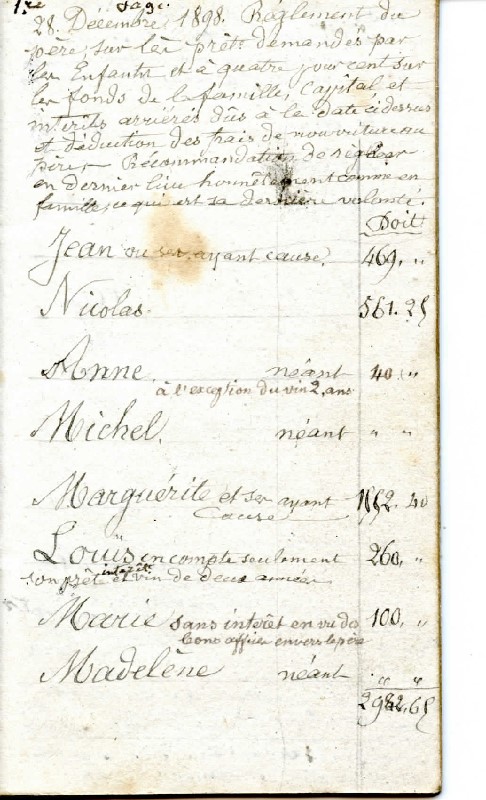 1re page.
28. Décembre 1898. Réglement du
père sur les prêts demandés par
les Enfants et à quatre pour cent sur
les fonds de la famille, Capital et
intérêts arriérés dûs à la date cidessus
et déduction des frais de nourriture au
père, Récommandation de régler
en dernier lieu honnêtement comme en
famille, ce qui est sa dernière volonté.
Doit
Jean ou ses ayant cause. 469. "
Nicolas. 561. 25
Anne. néant 40 "
à l'exception du vin 2, ans
Michel. néant " "
Marguérite et ses ayant 40
Cause
Louïs en compte seulement 260, "
son prêt intérêt et vin de deux années
Marie sans intérêt en vu des 100, "
bons affaires envers le père
Madelène néant " "
65